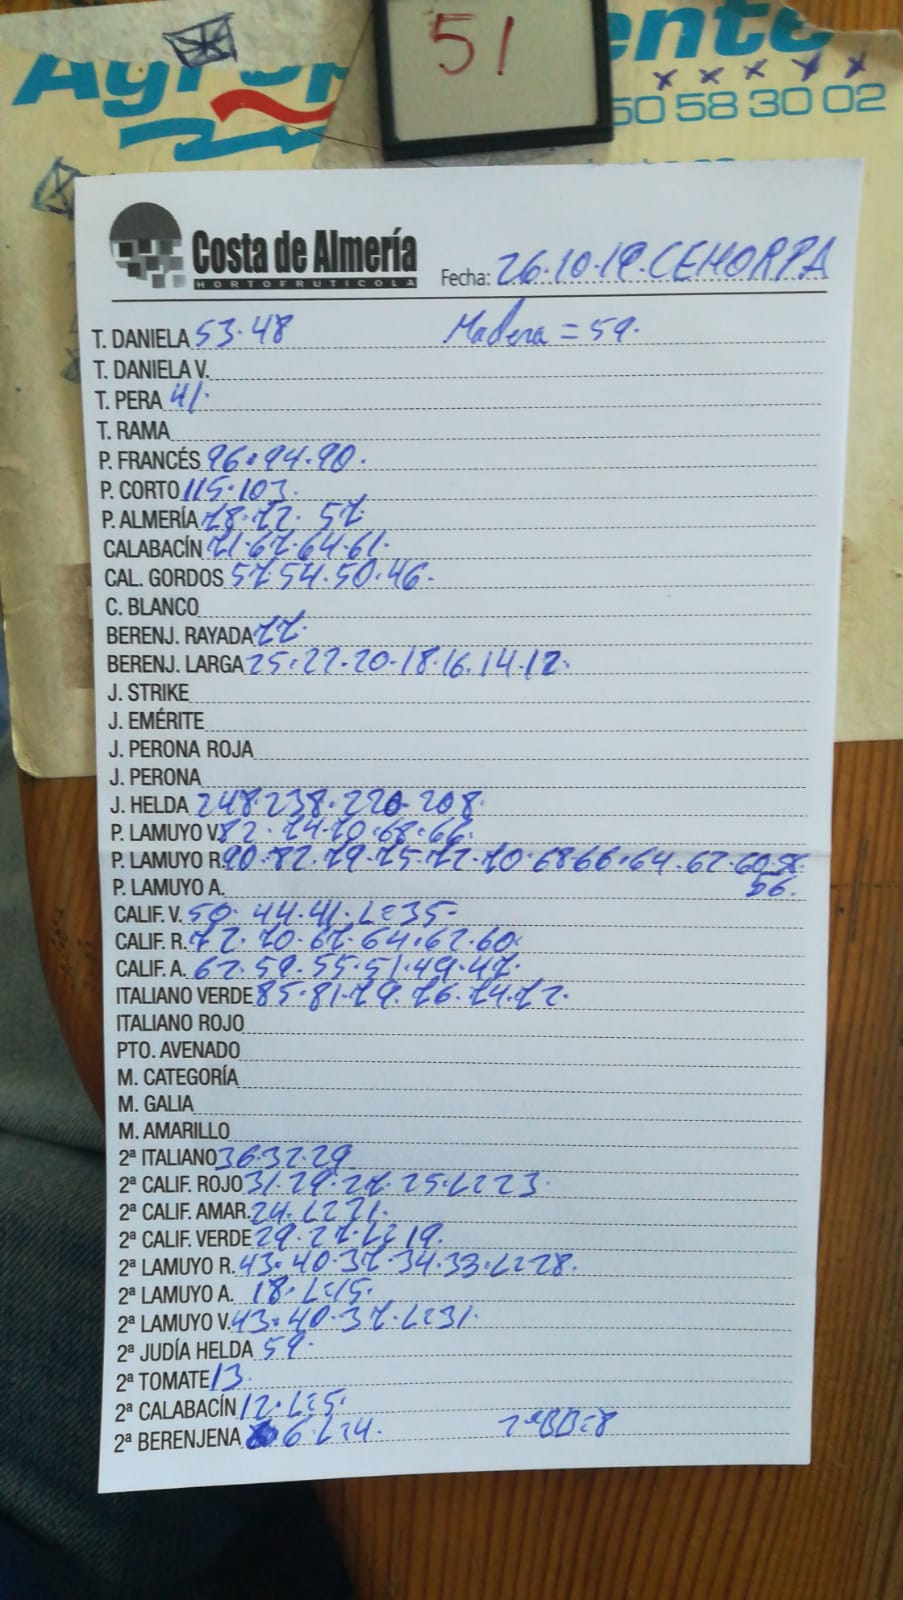 51
50 58 30 02
Costa de Almería
HORTOFRUTICOLA
Fecha: 26.10.19.CEHORPA
T. DANIELA 53.48 Madera = 59.
T. DANIELA V.
T. PERA 41.
T. RAMA
P. FRANCÉS 96.94.90.
P. CORTO 115.103.
P. ALMERÍA 78.72. 57
CALABACÍN 71.67.64.61.
CAL. GORDOS 57.54.50.46.
C. BLANCO
BERENJ. RAYADA 77.
BERENJ. LARGA 25.22.20.18.16.14.12.
J. STRIKE
J. EMÉRITE
J. PERONA ROJA
J. PERONA
J. HELDA 248.238.220.208.
P. LAMUYO V. 82.74.70.68.66.
P. LAMUYO R. 90.82.79.75.72.70.68.66.64.62.60.58.
P. LAMUYO A. 56.
CALIF. V. 50. 44.41.L=35.
CALIF. R. 72.70.67.64.62.60.
CALIF. A. 62.59.55.51.49.47.
ITALIANO VERDE 85.81.79.76.74.72.
ITALIANO ROJO
PTO. AVENADO
M. CATEGORÍA
M. GALIA
M. AMARILLO
2ª ITALIANO 36.32.29
2ª CALIF. ROJO 31.29.27.25.L=23.
2ª CALIF. AMAR. 24.L=21.
2ª CALIF. VERDE 29.27.L=19.
2ª LAMUYO R. 43.40.37.34.33.L=28.
2ª LAMUYO A. 18.L=15.
2ª LAMUYO V. 43.40.37.L=31.
2ª JUDÍA HELDA 59.
2ª TOMATE 13.
2ª CALABACÍN 12.L=5.
2ª BERENJENA 6.L=4. 2ªBB=8